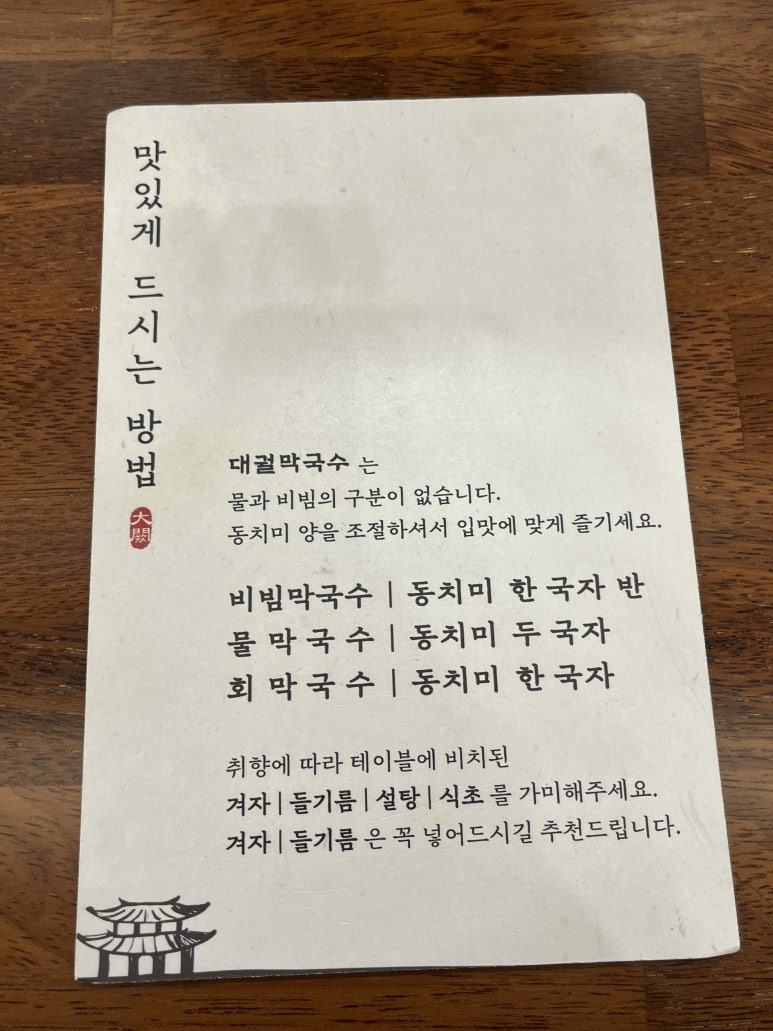 맛있게 드시는 방법
大闕
대궐막국수 는
물과 비빔의 구분이 없습니다.
동치미 양을 조절하셔서 입맛에 맞게 즐기세요.
비빔막국수 | 동치미 한 국자 반
물 막 국 수 | 동치미 두 국자
회 막 국 수 | 동치미 한 국자
취향에 따라 테이블에 비치된
겨자 | 들기름 | 설탕 | 식초 를 가미해주세요.
겨자 | 들기름 은 꼭 넣어드시길 추천드립니다.